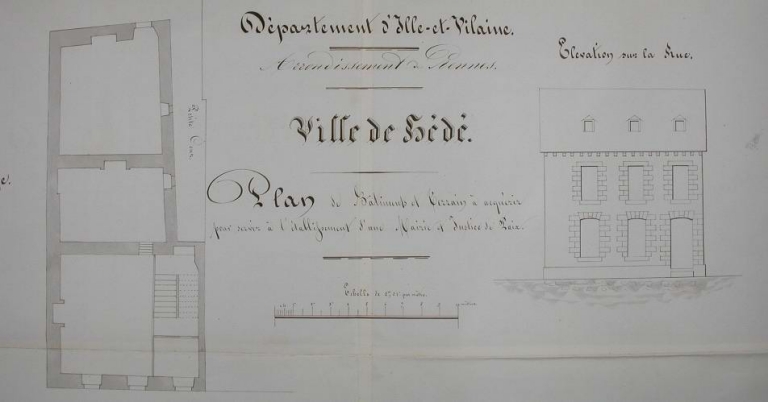 Département d'Ille-et-Vilaine.
Arrondissement de Rennes.
Elevation sur la Rue.
Ville de Hédé.
Plan de Bâtiment et Terrain à acquérir
pour servir à l'établissement d'une Mairie et Justice de Paix.
Echelle de par mètre
Cour